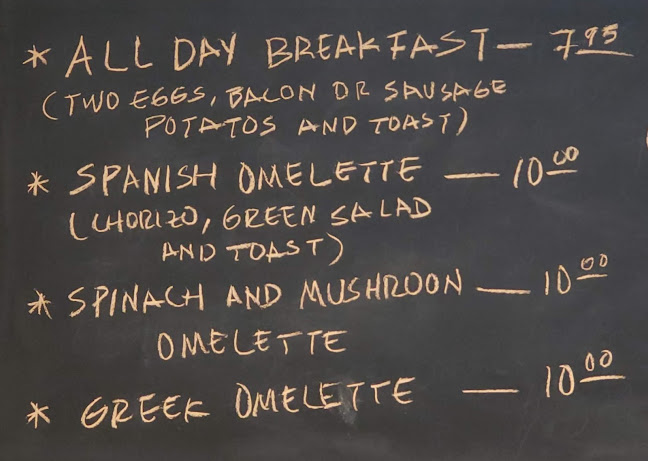 * ALL DAY BREAKFAST — 7.95
(TWO EGGS, BACON OR SAUSAGE
POTATOS AND TOAST)
* SPANISH OMELETTE — 10.00
(CHORIZO, GREEN SALAD
AND TOAST)
* SPINACH AND MUSHROON — 10.00
OMELETTE
* GREEK OMELETTE — 10.00